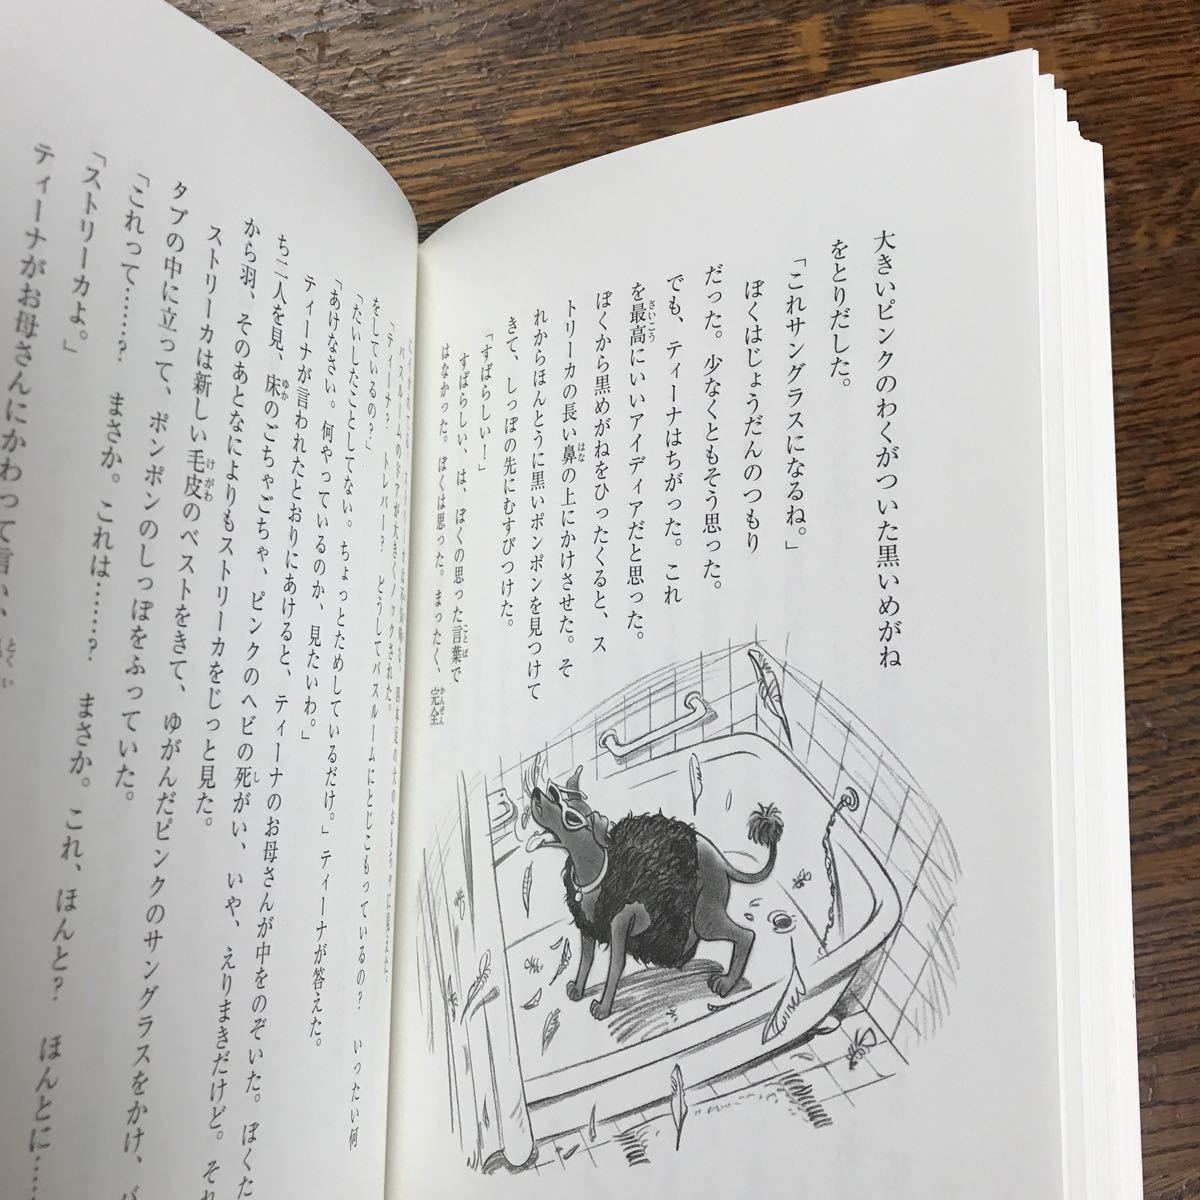 大きいピンクのわくがついた黒いめがね
をとりだした。
「これサングラスになるね。」
ぼくはじょうだんのつもり
だった。少なくともそう思った。
でも、ティーナはちがった。これ
さいこう
を最高にいいアイディアだと思った。
ぼくから黒めがねをひったくると、ス
はな
トリーカの長い鼻の上にかけさせた。そ
れからほんとうに黒いポンポンを見つけて
きて、しっぽの先にむすびつけた。
「すばらしい！」
ことば
すばらしい、は、ぼくの思った言葉で
かんぜん
はなかった。ぼくは思った。まったく、完全
四本足の犬のおもちゃに見えた。
バスルームのドアが大きくノックされた。
「ティーナ？　トレバー？　どうしてバスルームにとじこもっているの？　いったい何
をしているの？」
「たいしたことしてない。ちょっとためしているだけ。」ティーナが答えた。
「あけなさい。何やっているのか、見たいわ。」
ティーナが言われたとおりにあけると、ティーナのお母さんが中をのぞいた。ぼくた
ゆか　し
ち二人を見、床のごちゃごちゃ、ピンクのヘビの死がい、いや、えりまきだけど。それ
から羽、そのあとなによりもストリーカをじっと見た。
けがわ
ストリーカは新しい毛皮のベストをきて、ゆがんだピンクのサングラスをかけ、バ
タブの中に立って、ポンポンのしっぽをふっていた。
「これって……？　まさか。これは……？　まさか。これ、ほんと？　ほんとに……
「ストリーカよ。」
とくい
ティーナがお母さんにかわって言い、